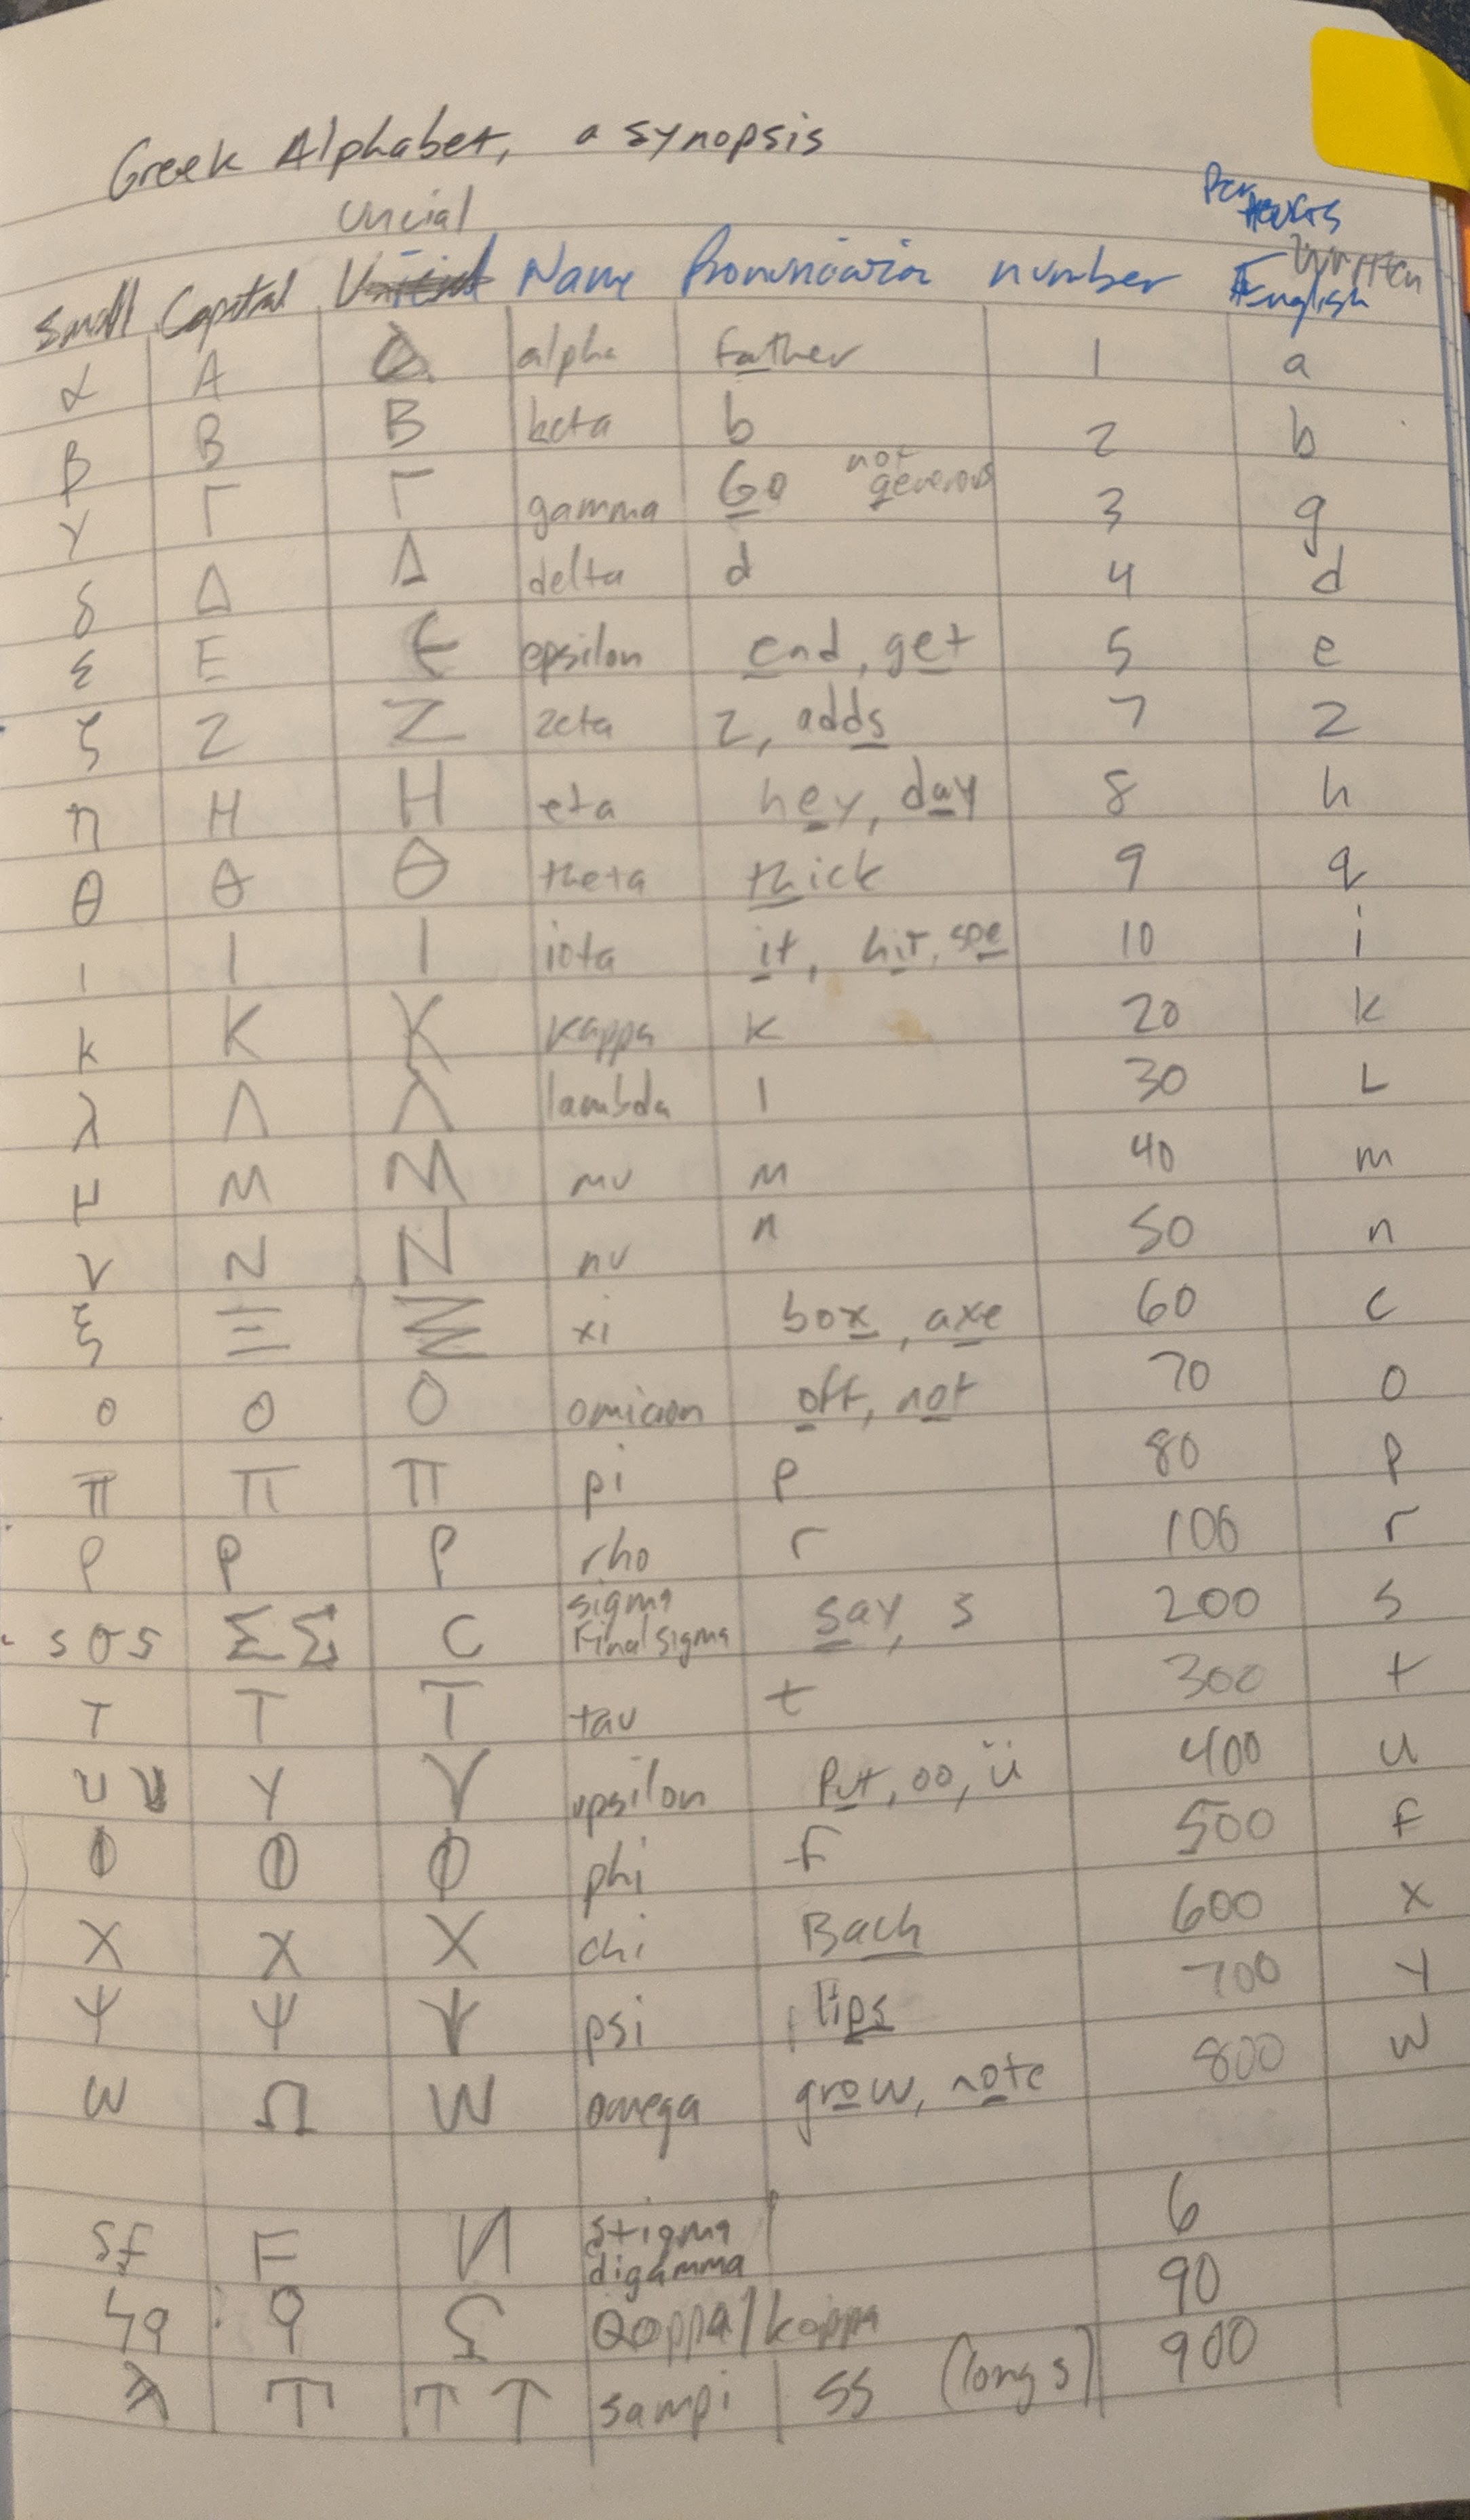 Greek Alphabet, a synopsis
Uncial
Small Capital Name Pronunciation number written English
α A alpha father 1 a
β B B beta b 2 b
γ Γ Γ gamma Go not generous 3 g
δ Δ Δ delta d 4 d
ε E Є epsilon end, get 5 e
ζ Z Z zeta z, adds 7 z
η H H eta hey, day 8 h
θ Θ Θ theta thick 9 q
ι Ι Ι iota it, hit, 10 i
κ K K kappa k 20 k
λ Λ λ lambda l 30 L
μ M M mu m 40 m
ν N N nu n 50 n
ξ Ξ xi box, axe 60 c
ο O O omicron off, not 70 o
π Π Π pi p 80 p
ρ Ρ Ρ rho r 100 r
s σ ς Σ Σ C sigma Final sigma say, s 200 s
τ T T tau t 300 t
υ Υ Υ upsilon put, oo, ü 400 u
φ Φ Φ phi f 500 f
χ Χ Χ chi Bach 600 x
ψ Ψ Ψ psi lips 700 y
ω Ω W omega grow, note 800 w
F И stigma digamma 6
ϟ ϙ Ϙ Qoppa/koppa 90
T T ↑ sampi ss (long s) 900